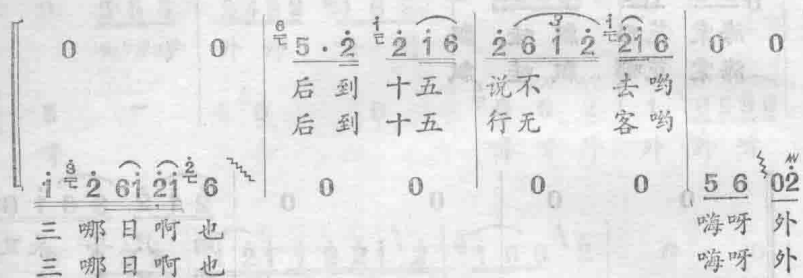 0 0 5 · 2 2 1 6 2 6 1 2 2 1 6 0 0
后到 十五 说不 去哟
后到 十五 行无 客哟
1 2 6 1 2 1 6 0 0 0 0 5 6 0 2
三 哪日啊 也 嗨呀 外
三 哪日啊 也 嗨呀 外